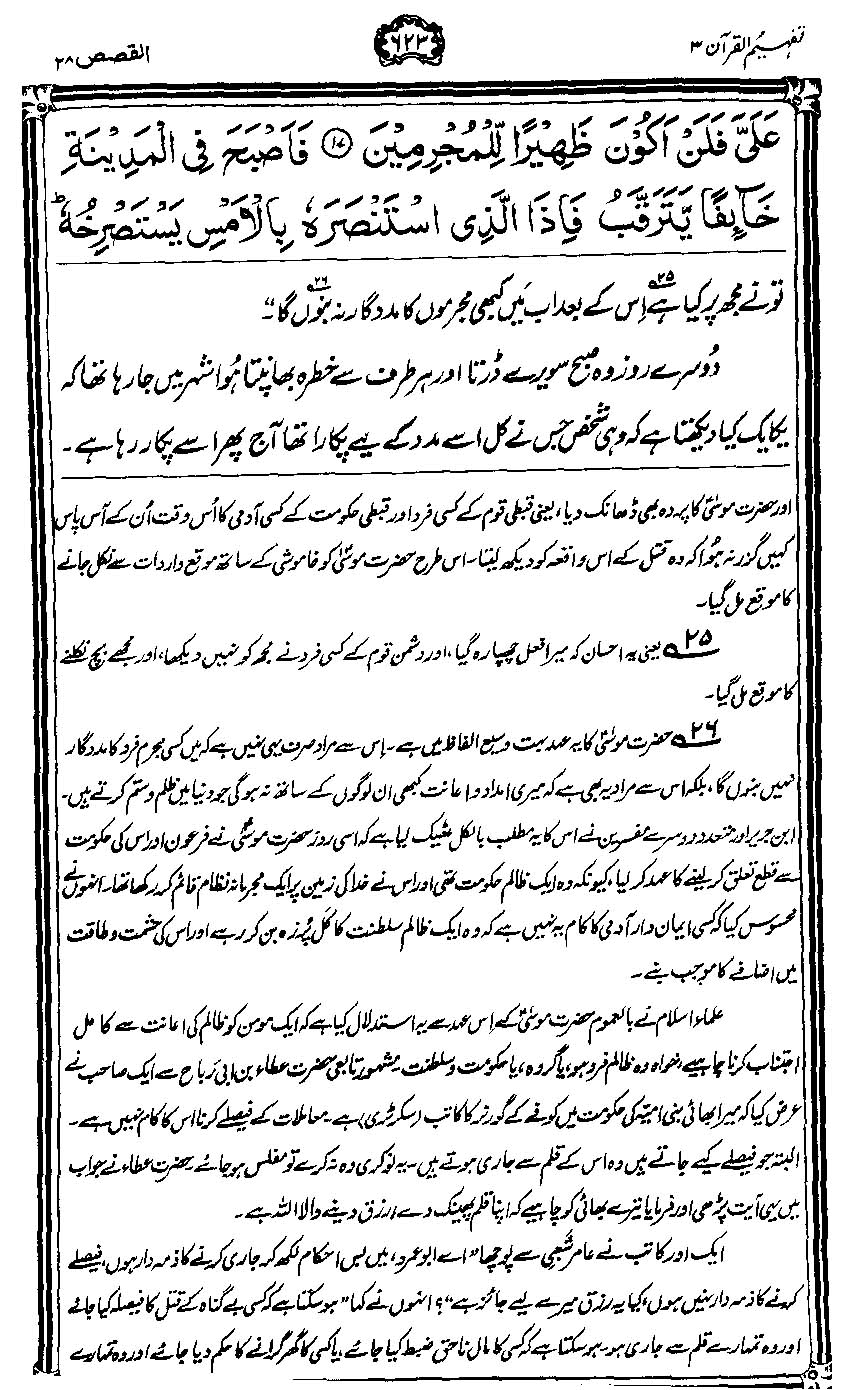 تفہیم القرآن ۳
۶۲۳
القصص ۲۸
عَلَیَّ فَلَنْ اَکُوْنَ ظَهِیْرًا لِّلْمُجْرِمِیْنَ ۱۷ فَاَصْبَحَ فِی الْمَدِیْنَةِ
خَآئِفًا یَّتَرَقَّبُ فَاِذَا الَّذِی اسْتَنْصَرَهٗ بِالْاَمْسِ یَسْتَصْرِخُهٗ ؕ
تُو نے مجھ پر کیا ہے۲۵ اِس کے بعد اب مَیں کبھی مجرموں کا مدد گار نہ بنوں گا۲۶“۔
دُوسرے روز وہ صبح سویرے ڈرتا اور ہر طرف سے خطرہ بھانپتا ہُوا شہر میں جا رہا تھا کہ
یکایک کیا دیکھتا ہے کہ وہی شخص جس نے کل اسے مدد کے لیے پکارا تھا آج پھر اسے پکار رہا ہے۔
اور حضرت موسٰیؑ کا پردہ بھی ڈھانک دیا، یعنی قبطی قوم کے کسی فرد اور قبطی حکومت کے کسی آدمی کا اُس وقت اُن کے آس پاس
کہیں گزر نہ ہُوا کہ وہ قتل کے اس واقعہ کو دیکھ لیتا۔ اس طرح حضرت موسٰیؑ کو خاموشی کے ساتھ موقع واردات سے نکل جانے
کا موقع مل گیا۔
۲۵ یعنی یہ احسان کہ میرا فعل چھپا رہ گیا، اور دشمن قوم کے کسی فرد نے مجھ کو نہیں دیکھا، اور مجھے بچ نکلنے
کا موقع مل گیا۔
۲۶ حضرت موسٰیؑ کا یہ عہد بہت وسیع الفاظ میں ہے۔ اِس سے مراد صرف یہی نہیں ہے کہ میں کسی مجرم فرد کا مددگار
نہیں بنوں گا، بلکہ اس سے مراد یہ بھی ہے کہ میری امداد و اعانت کبھی ان لوگوں کے ساتھ نہ ہو گی جو دنیا میں ظلم و ستم کرتے ہیں۔
ابن جریر اور متعدد دوسرے مفسرین نے اس کا یہ مطلب بالکل ٹھیک لیا ہے کہ اسی روز حضرت موسٰیؑ نے فرعون اور اس کی حکومت
سے قطع تعلق کر لینے کا عہد کر لیا، کیونکہ وہ ایک ظالم حکومت تھی اور اس نے خدا کی زمین پر ایک مجرمانہ نظام قائم کر رکھا تھا۔ انھوں نے
محسوس کیا کہ کسی ایمان دار آدمی کا کام یہ نہیں ہے کہ وہ ایک ظالم سلطنت کا کَل پُرزہ بن کر رہے اور اس کی حشمت و طاقت
میں اضافے کا موجب بنے۔
علماء اسلام نے بالعموم حضرت موسٰیؑ کے اِس عہد سے یہ استدلال کیا ہے کہ ایک مومن کو ظالم کی اعانت سے کامل
اجتناب کرنا چاہیے، خواہ وہ ظالم فرد ہو، یا گروہ، یا حکومت و سلطنت۔ مشہور تابعی حضرت عطاء بن ابی رَباح سے ایک صاحب نے
عرض کیا کہ میرا بھائی بنی امیّہ کی حکومت میں کوفے کے گورنر کا کاتب (سکرٹری) ہے۔ معاملات کے فیصلے کرنا اس کا کام نہیں ہے۔
البتہ جو فیصلے کیے جاتے ہیں وہ اس کے قلم سے جاری ہوتے ہیں۔ یہ نوکری وہ نہ کرے تو مفلس ہو جائے۔ حضرت عطاء نے جواب
میں یہی آیت پڑھی اور فرمایا تیرے بھائی کو چاہیے کہ اپنا قلم پھینک دے، رزق دینے والا اللہ ہے۔
ایک اور کاتب نے عامر شَعْبِی سے پوچھا ”اے ابو عمرو، میں بس احکام لکھ کر جاری کرنے کا ذمہ دار ہوں، فیصلے
کرنے کا ذمہ دار نہیں ہوں، کیا یہ رزق میرے لیے جائز ہے“؟ انھوں نے کہا ”ہو سکتا ہے کہ کسی بے گناہ کے قتل کا فیصلہ کیا جائے
اور وہ تمہارے قلم سے جاری ہو۔ ہو سکتا ہے کہ کسی کا مال ناحق ضبط کیا جائے، یا کسی کا گھر گرانے کا حکم دیا جائے اور وہ تمہارے